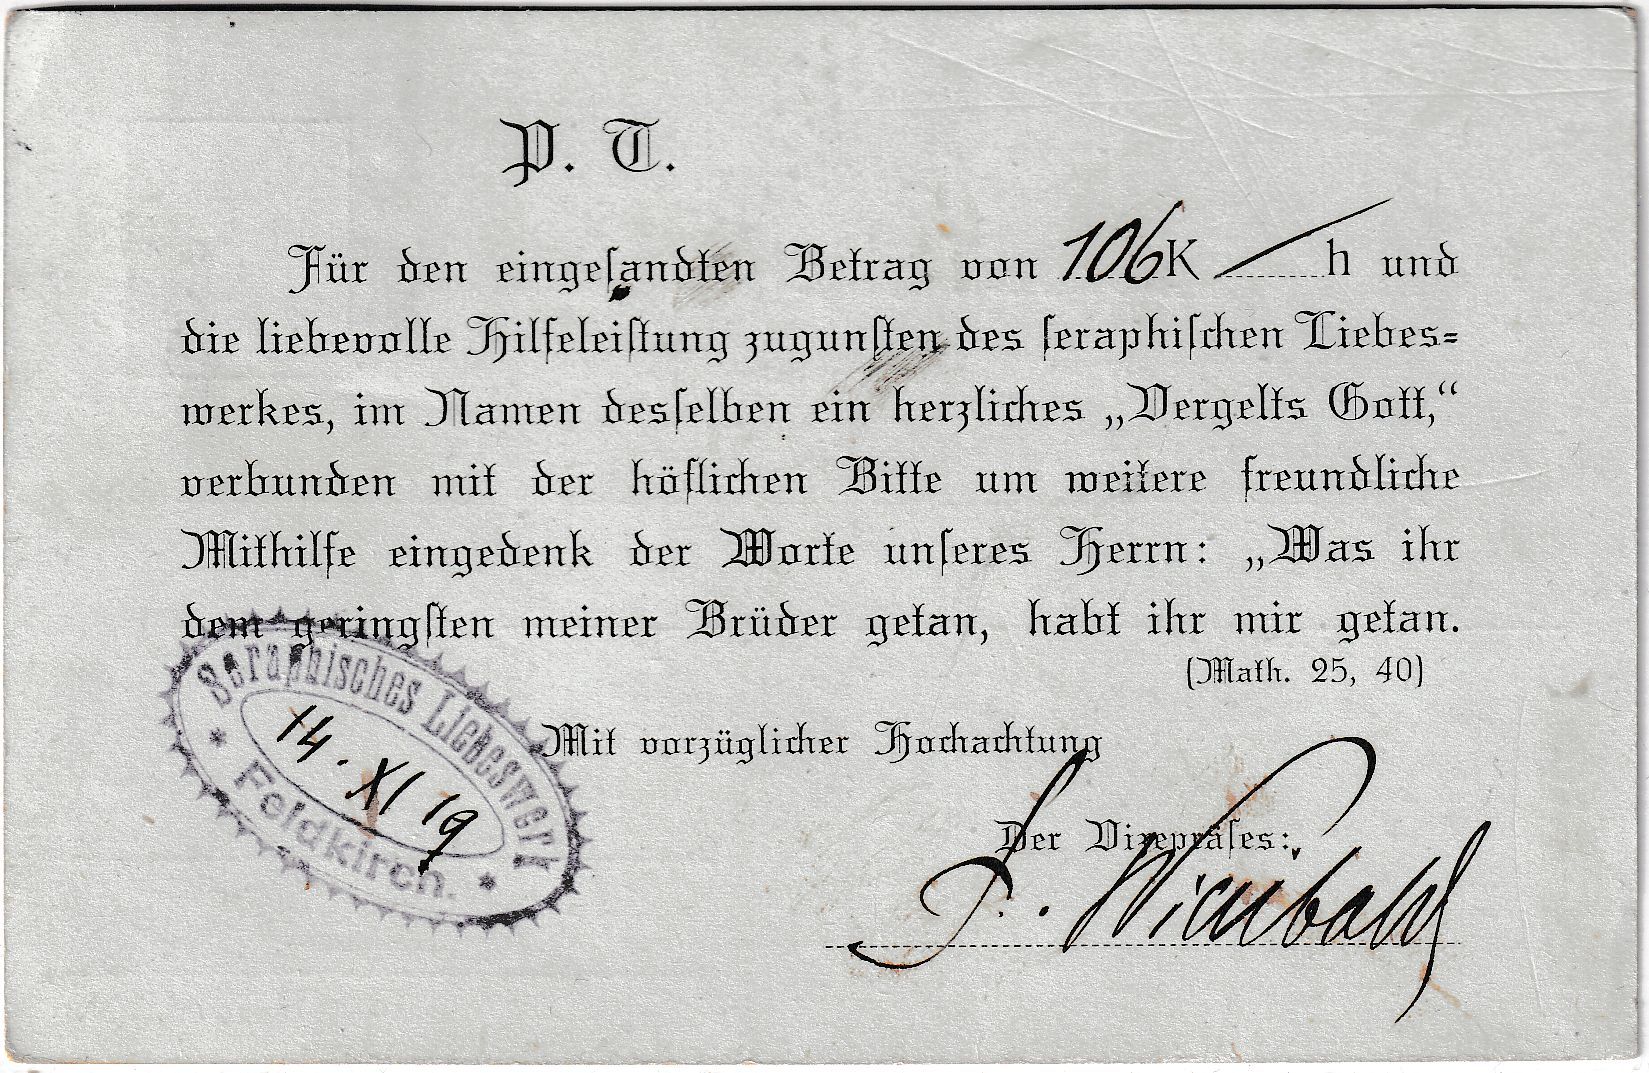 P. T.
Für den eingesandten Betrag von 106 K — h und
die liebevolle Hilfeleistung zugunsten des seraphischen Liebes=
werkes, im Namen desselben ein herzliches „Vergelts Gott,“
verbunden mit der höflichen Bitte um weitere freundliche
Mithilfe eingedenk der Worte unseres Herrn: „Was ihr
dem geringsten meiner Brüder getan, habt ihr mir getan.
(Math. 25, 40)
Mit vorzüglicher Hochachtung
Der Vizepräses:
Seraphisches Liebeswerk
14. XI 19
* Feldkirch. *